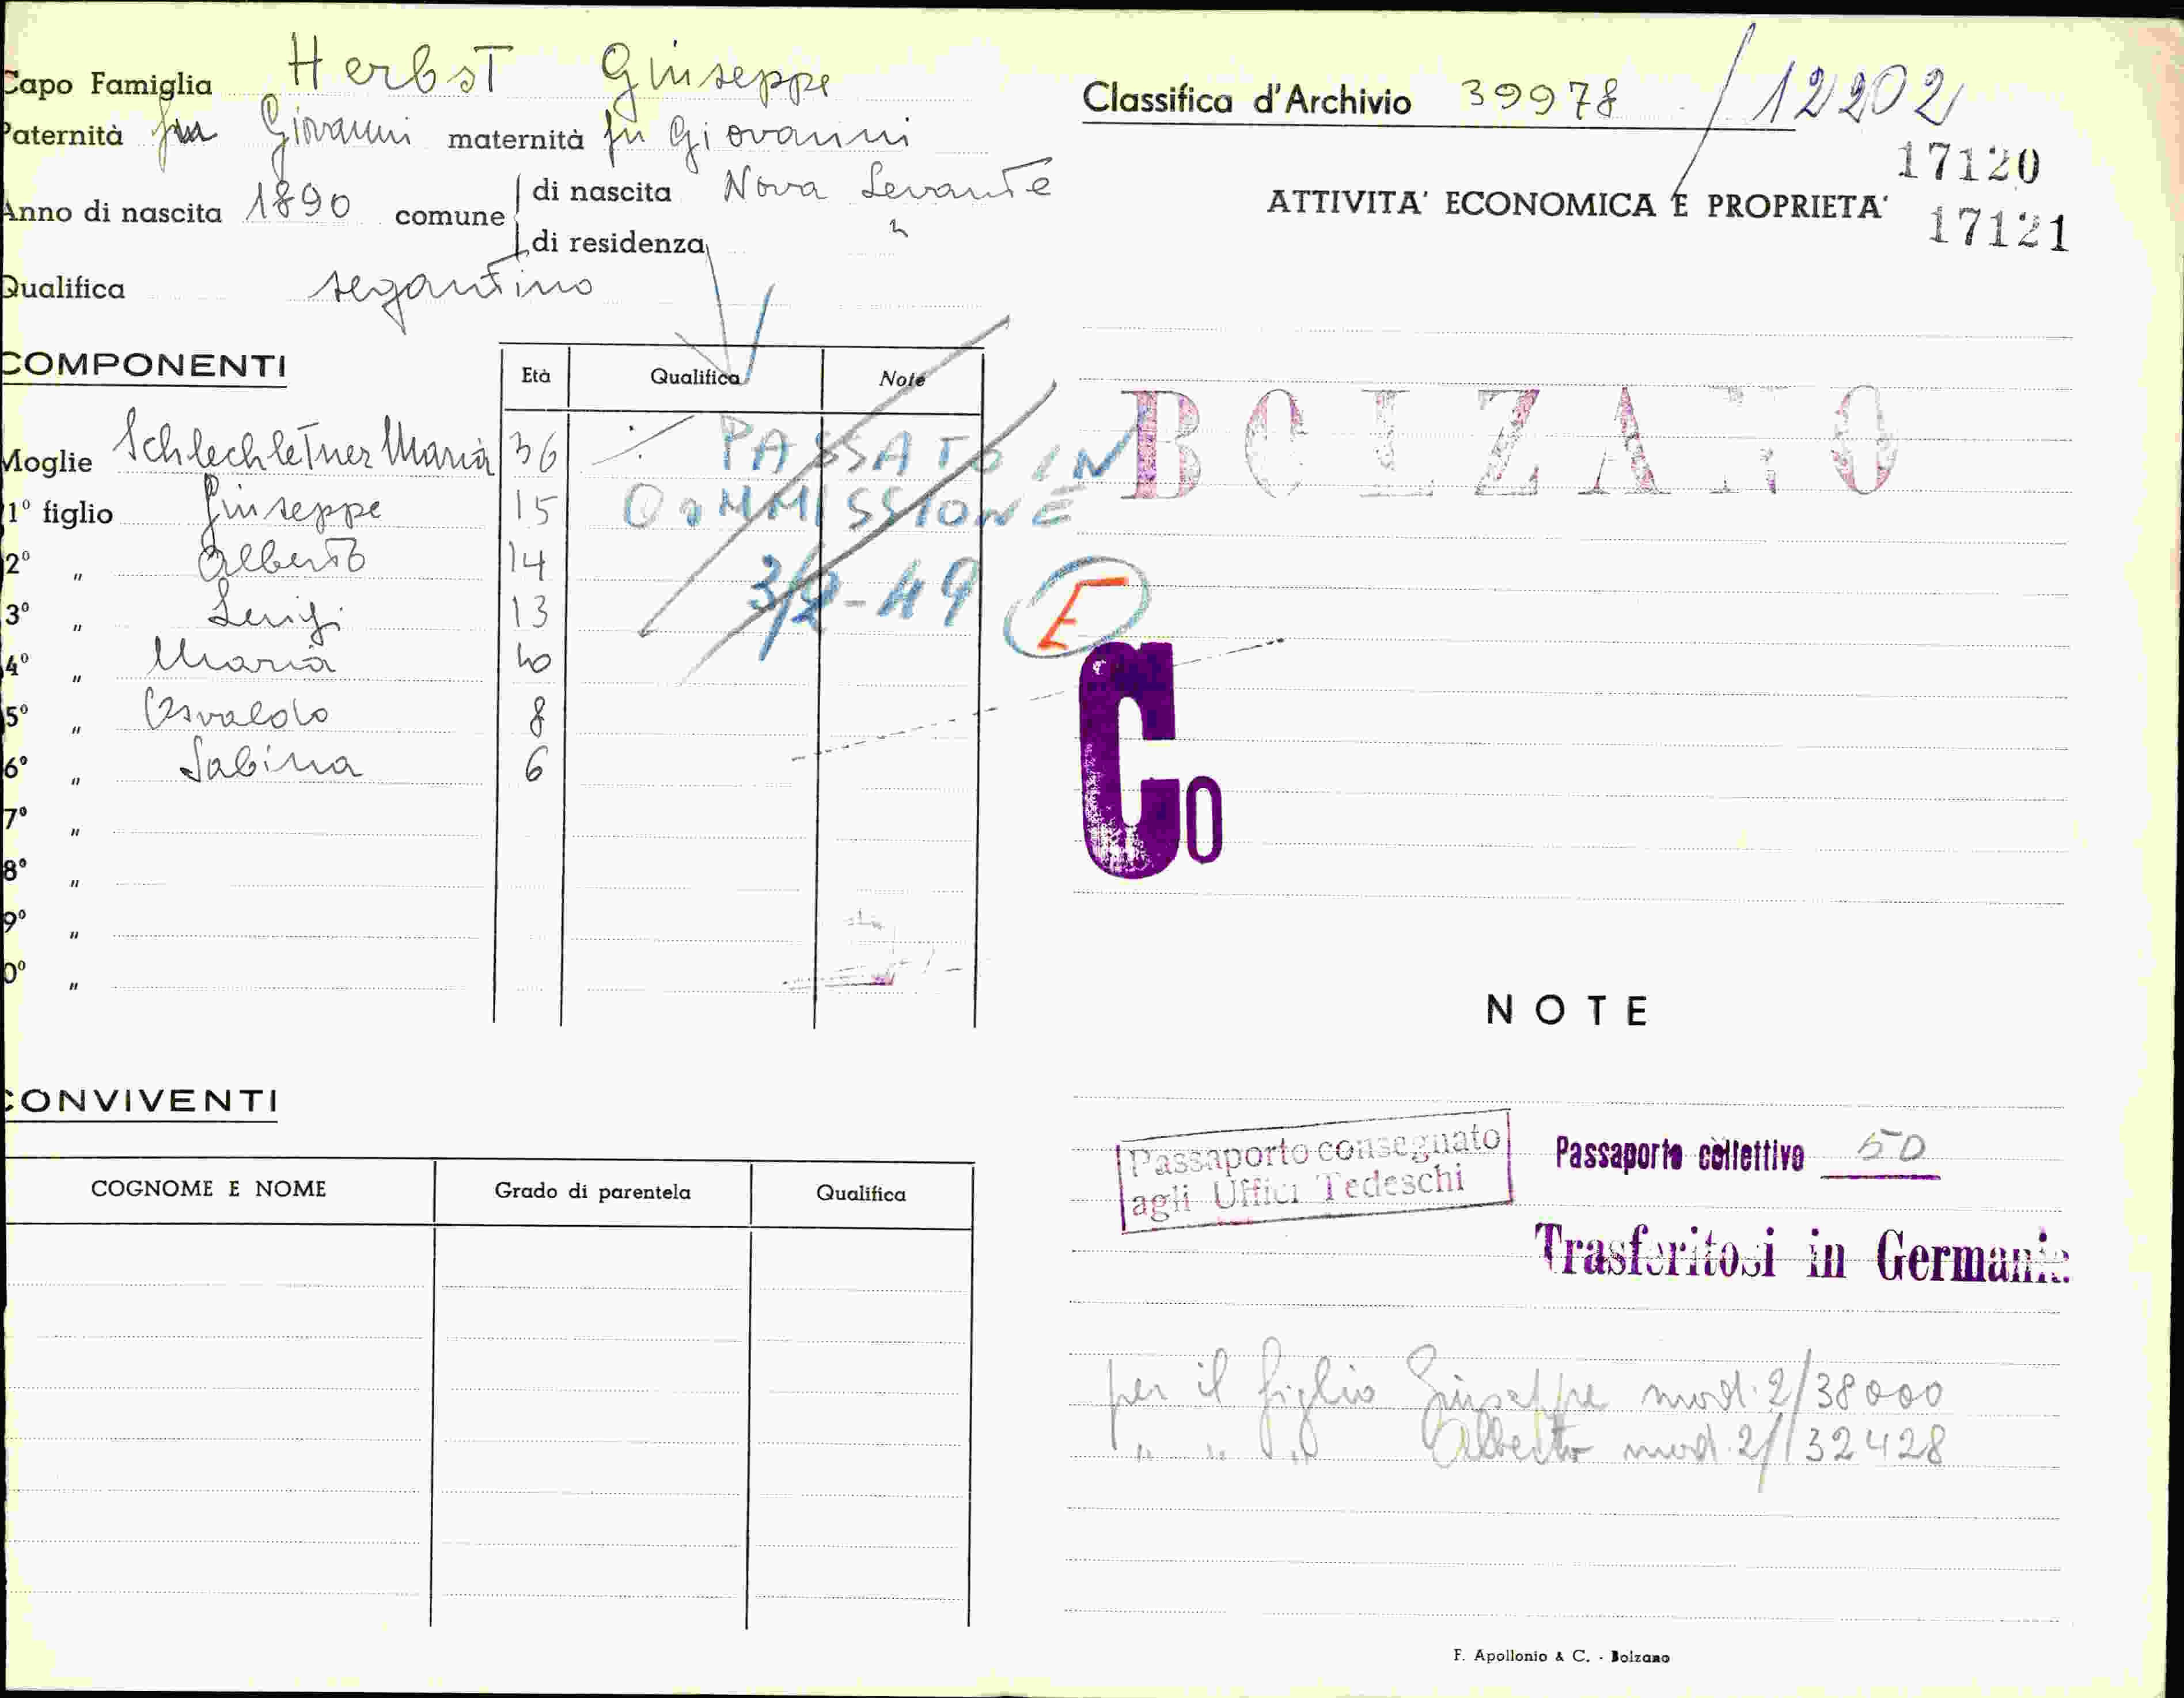 Capo Famiglia Herbst Giuseppe
Paternità fu Giovanni maternità fu Giovanni
Anno di nascita 1890 comune di nascita Nova Levante
di residenza "
Qualifica segantino
COMPONENTI Età Qualifica Note
Moglie Schlechleitner Maria 36
1° figlio Giuseppe 15
2° " Alberto 14
3° " Luigi 13
4° " Maria 10
5° " Osvaldo 8
6° " Sabina 6
7° "
8° "
9° "
0° "
PASSATO IN
COMMISSIONE
3/2-49 E
CONVIVENTI
COGNOME E NOME Grado di parentela Qualifica
Classifica d'Archivio 39978 / 12202
17120
ATTIVITA' ECONOMICA E PROPRIETA' 17121
BOLZANO
Co
NOTE
Passaporto consegnato
agli Uffici Tedeschi
Passaporto collettivo 50
Trasferitosi in Germania
per il figlio Giuseppe mod. 2/38000
" " " Alberto mod. 2/132428
F. Apollonio & C. - Bolzano